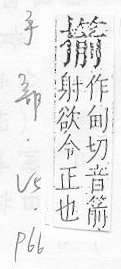 擶
作甸切音箭
射欲令正也
手部.V5.p66